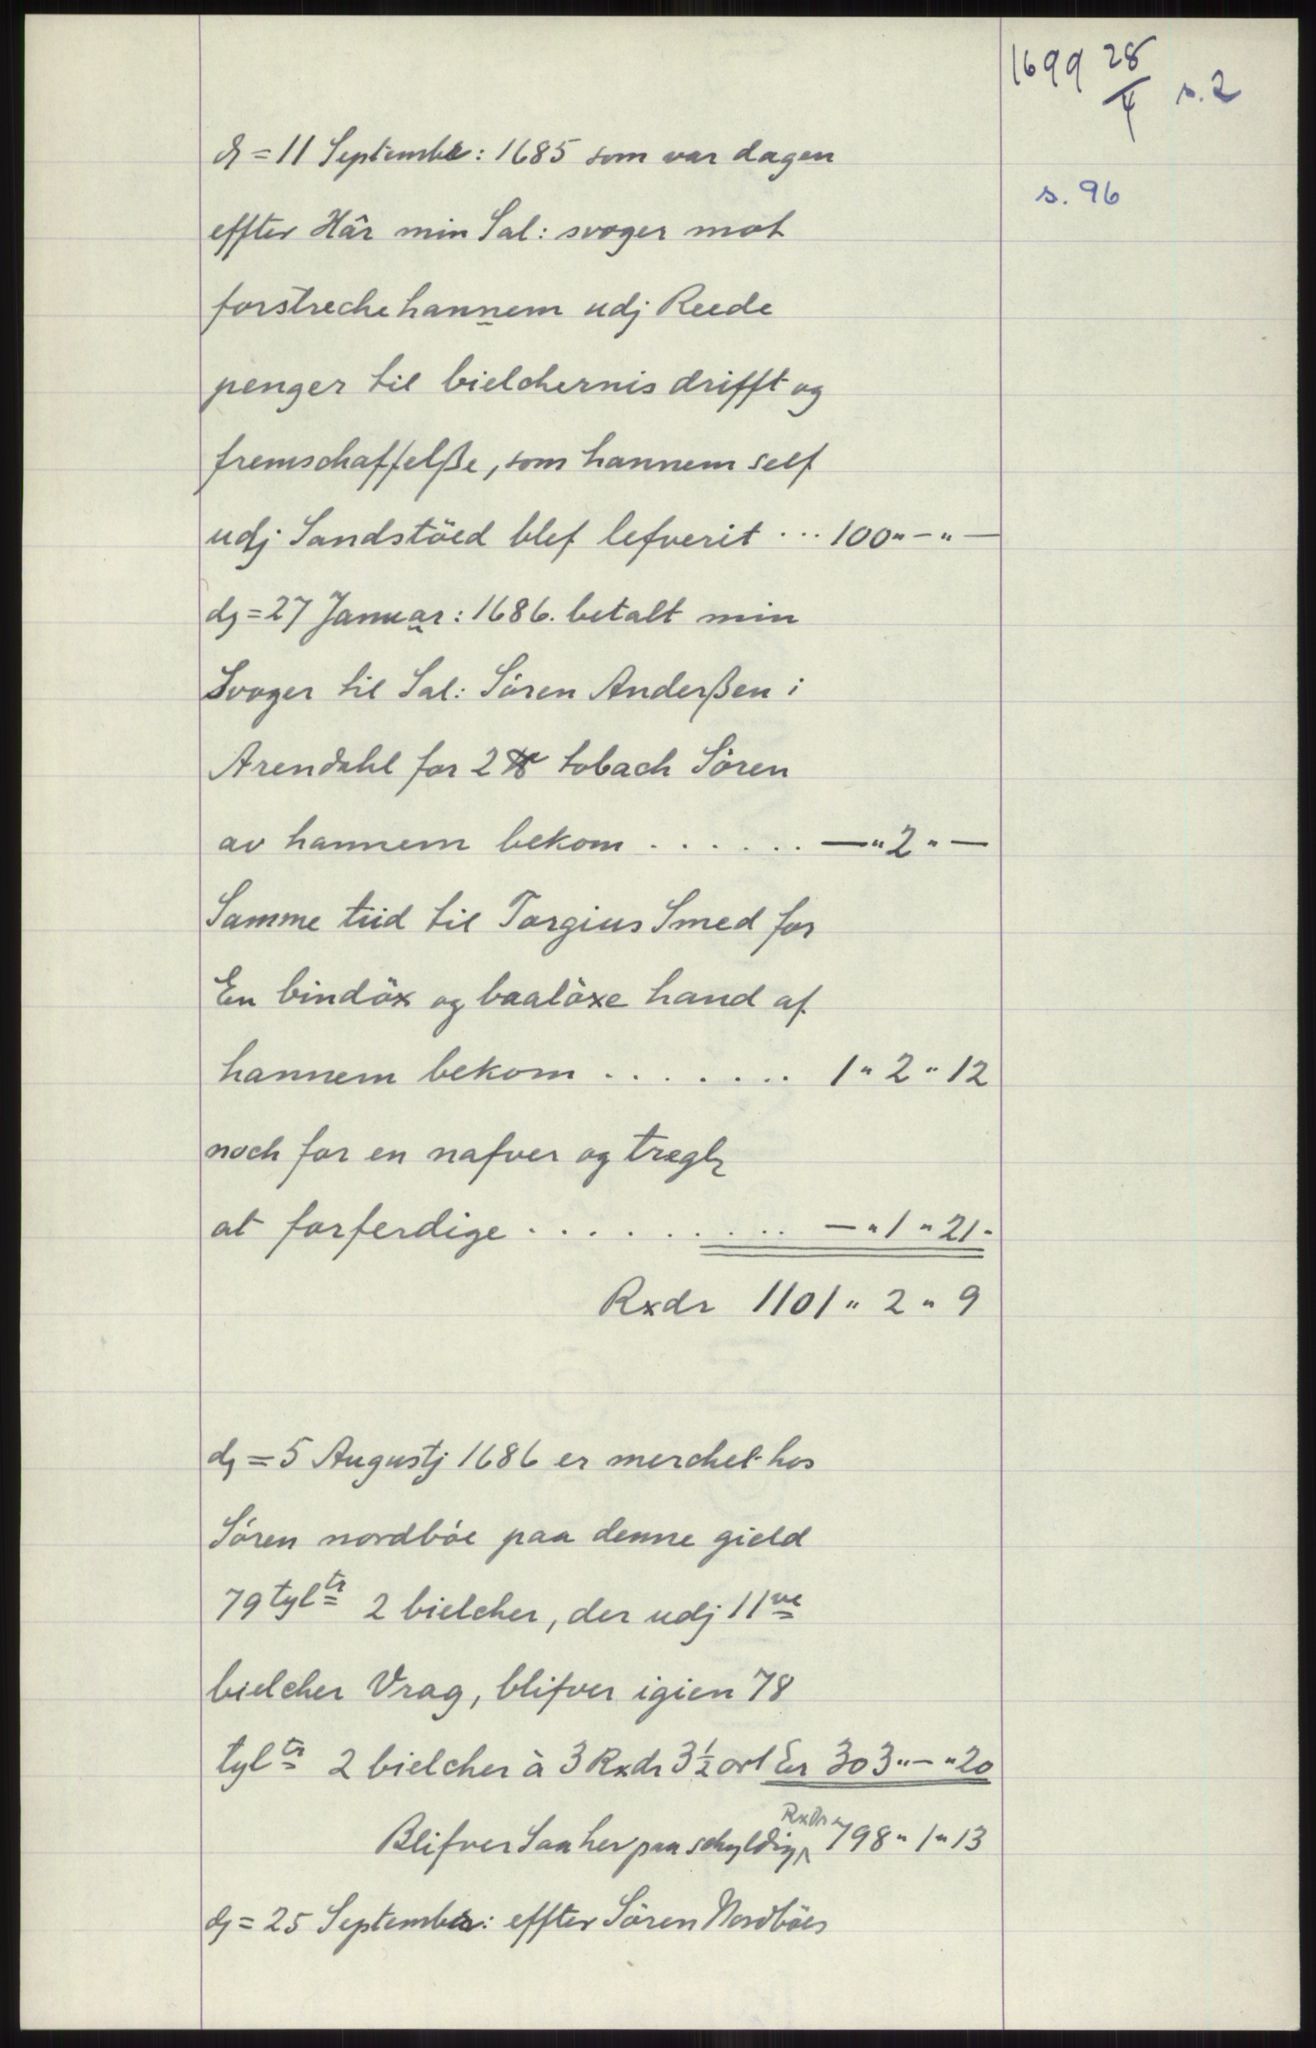 1699 28/4 s. 2
s. 96
dj = 11 Septembr: 1685 som var dagen
effter Hâr min Sal: svoger mot
forstreche hannem udj Reede
penger til bielchernis drifft og
fremschaffelße, som hannem self
udj Sandstöed blef lefverit ... 100 " - " -
dj = 27 Januar: 1686. betalt min
Svoger til Sal: Sören Anderßen i
Arendahl for 2 ℔ tobach Sören
av hannem bekom . . . . . . - " 2 " -
Samme tiid til Torgius Smed for
En bindöx og baalöxe hand af
hannem bekom . . . . . . . 1 " 2 " 12
noch for en nafver og
at forferdige . . . . . . . . . . - " 1 " 21 -
Rxdr 1101 " 2 " 9
dj = 5 Augustj 1686 er merchet hos
Sören nordböe paa denne gield
79 tyltr 2 bielcher, der udj 11ve
bielcher Vrag, blifver igien 78
tyltr 2 bielcher à 3 Rxdr 3½ ort Er 303 " - " 20
Blifver Saa her paa schyldig Rxdr 798 " 1 " 13
dj = 25 Septembr: effter Sören Nordböes